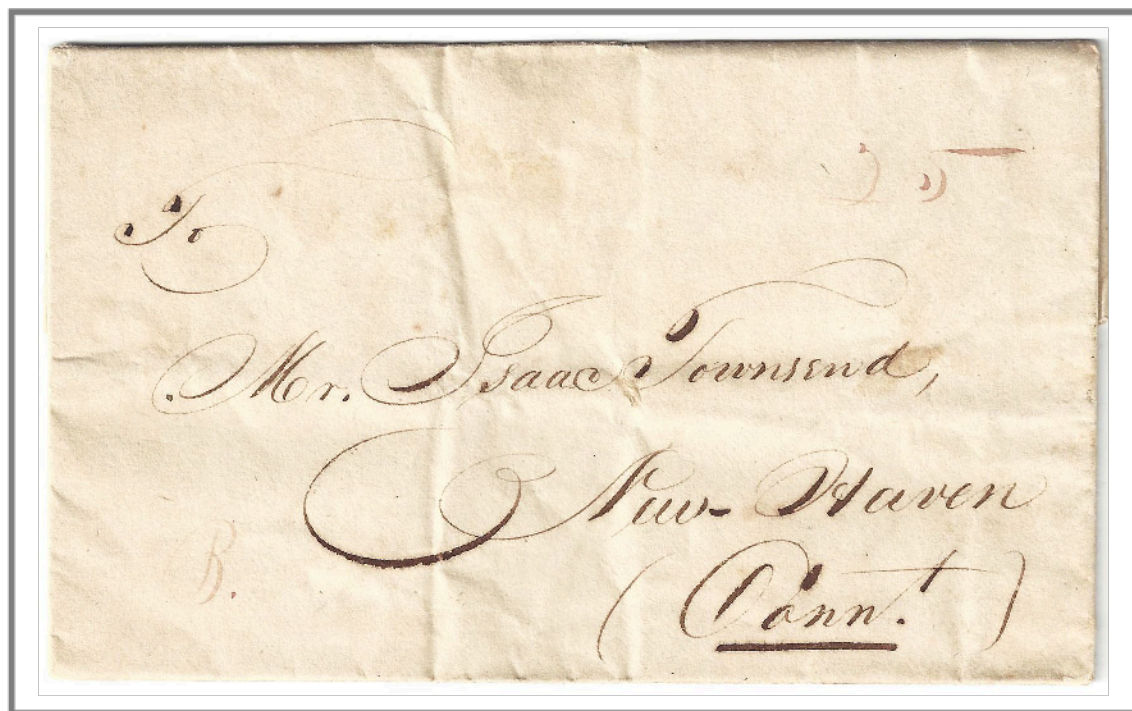 25
To
Mr. Isaac Townsend,
New-Haven
(Conn.t)